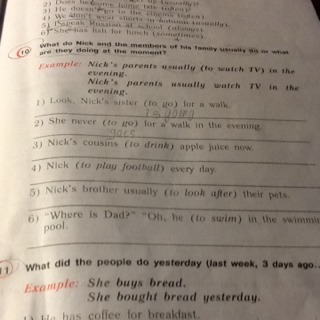 2) Does he
3) He doesn't go to the
4) We don't wear shorts in
5) I speak Russian at school (always).
6) She has fish for lunch (sometimes).
10 What do Nick and the members of his family usually do or what
are they doing at the moment?
Example: Nick's parents usually (to watch TV) in the
evening.
Nick's parents usually watch TV in the
evening.
1) Look, Nick's sister (to go) for a walk.
is going
2) She never (to go) for a walk in the evening.
goes
3) Nick's cousins (to drink) apple juice now.
4) Nick (to play football) every day.
5) Nick's brother usually (to look after) their pets.
6) "Where is Dad?" "Oh, he (to swim) in the swimmin
pool.
11 What did the people do yesterday (last week, 3 days ago..
Example: She buys bread.
She bought bread yesterday.
1) He has coffee for breakfast.